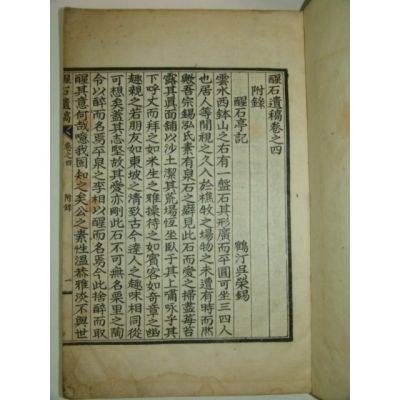 醒石遺稿卷之四
附錄
醒石亭記 鶴汀吳榮錫
雲水西鉢山之右有一盤石其形廣而平圓可坐三四人
也居人等閒視之久入於樵牧之場物之未遭有時而然
歟吾宗錫泓氏素有泉石之癖見此石而愛之掃盡莓苔
露其眞面舖以沙土潔其荒場恆坐臥于其上嘯咏于其
下呼丈而拜之如米生之雅操待之如賓客如奇章之
趣親之若朋友如東坡之淸致古今達人之趣味相同從
可想矣蓋其志堅故其愛亦剛此石不可無名栗里之陶
令以醉而名焉平泉之李相以醒而名焉今此捨醉而取
醒其意何哉噫我固知之矣公之素性溫恭雅淡不與世
醒石遺稿 卷之四 附錄 一